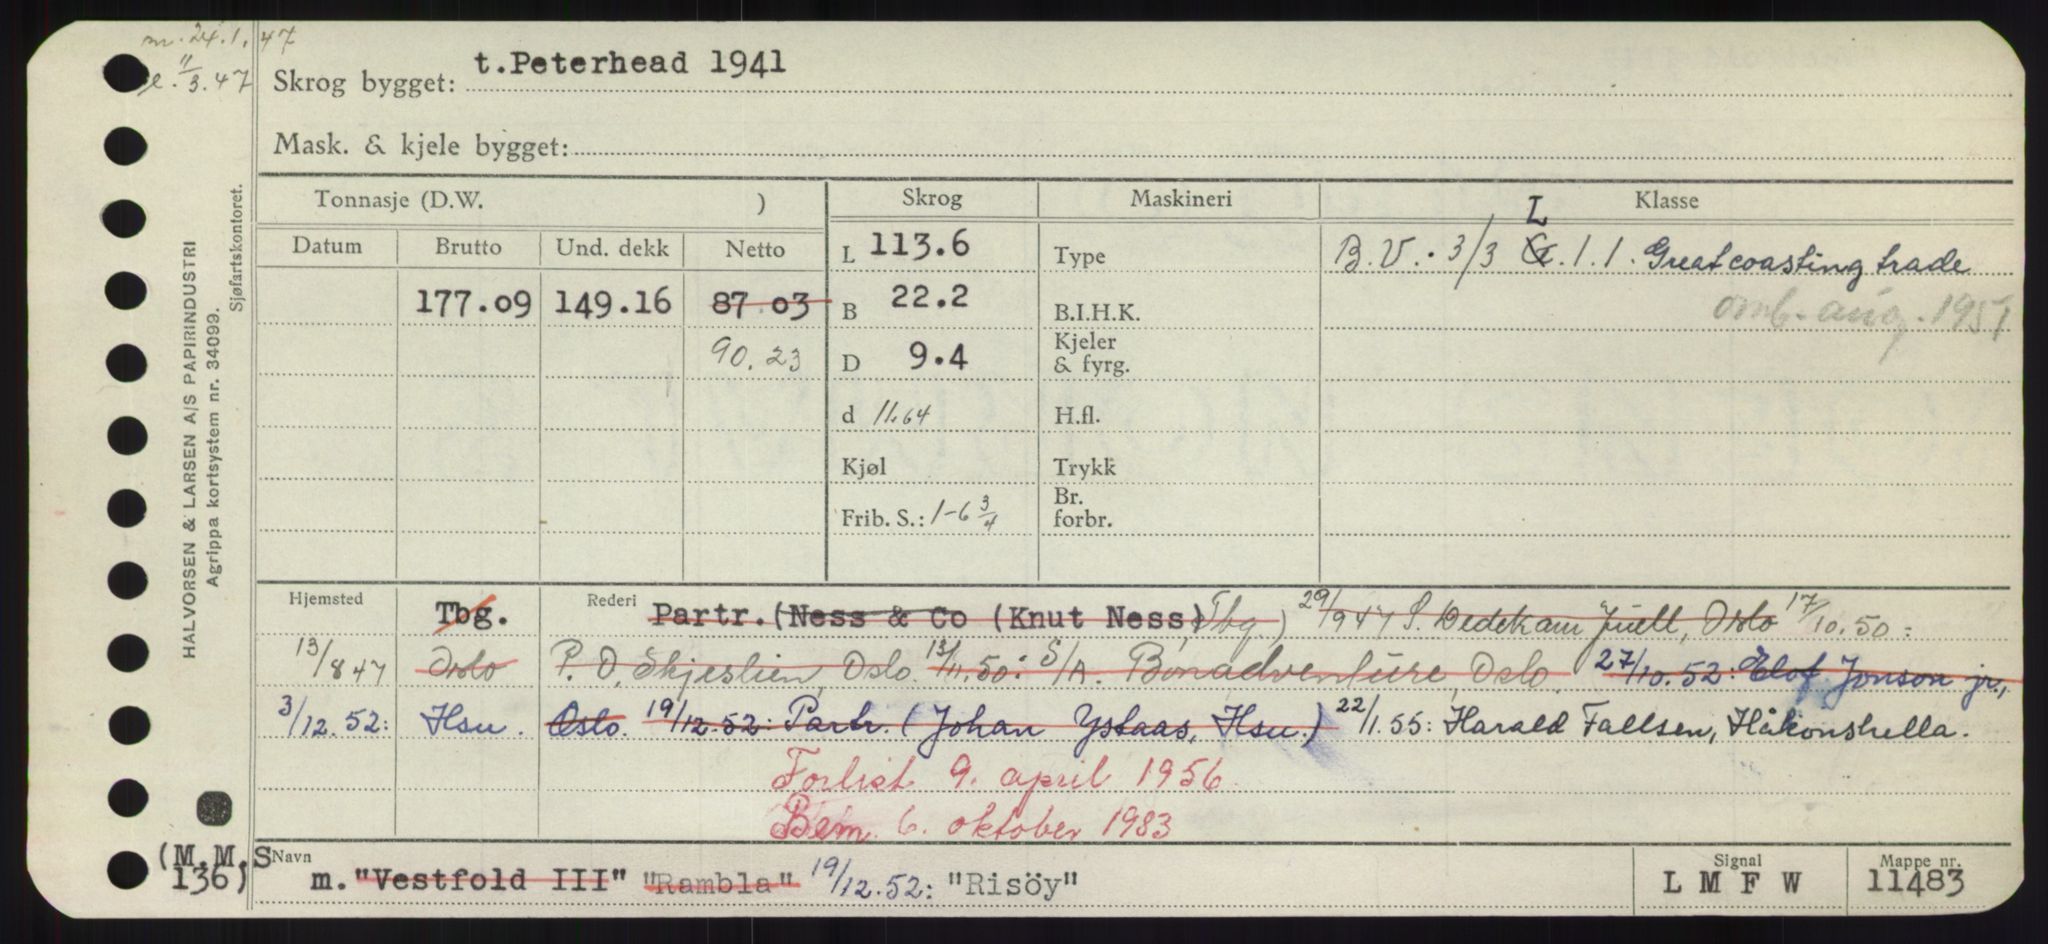 m. 24.1.47
11/3.47
Skrog bygget: t.Peterhead 1941
Mask. & kjele bygget:
HALVORSEN & LARSEN A/S PAPIRINDUSTRI
Agrippa kortsystem nr. 34099.
Sjøfartskontoret.
Tonnasje (D.W. ) Skrog Maskineri Klasse
Datum Brutto Und. dekk Netto
L 113.6 Type L B.V. 3/3 G.1.1. Great coasting trade
177.09 149.16 87 03 B 22.2 B.I.H.K. omb. aug. 1951
90.23 D 9.4 Kjeler & fyrg.
d 11.64 H.fl.
Kjøl Trykk
Frib. S.: 1-6 3/4 Br. forbr.
Hjemsted Tbg. Rederi Partr. (Ness & Co (Knut Ness) Tbg.) 29/9 47 S. Dedekam Juell, Oslo 17/10.50:
13/8 47 Oslo P. D. Skjeslien, Oslo. 13/11.50: S/A. Bonadventure, Oslo. 27/10.52: Elof Jonson jr.,
3/12.52: Hsu. Oslo. 19/12.52: Partr. (Johan Ystaas, Hsu.) 22/1.55: Harald Fallsen, Håkonshella.
Forlist 9. april 1956
Bem. 6. oktober 1983
(M.M.S 136) Navn m. "Vestfold III" "Rambla" 19/12.52: "Risöy" Signal L M F W Mappe nr. 11483